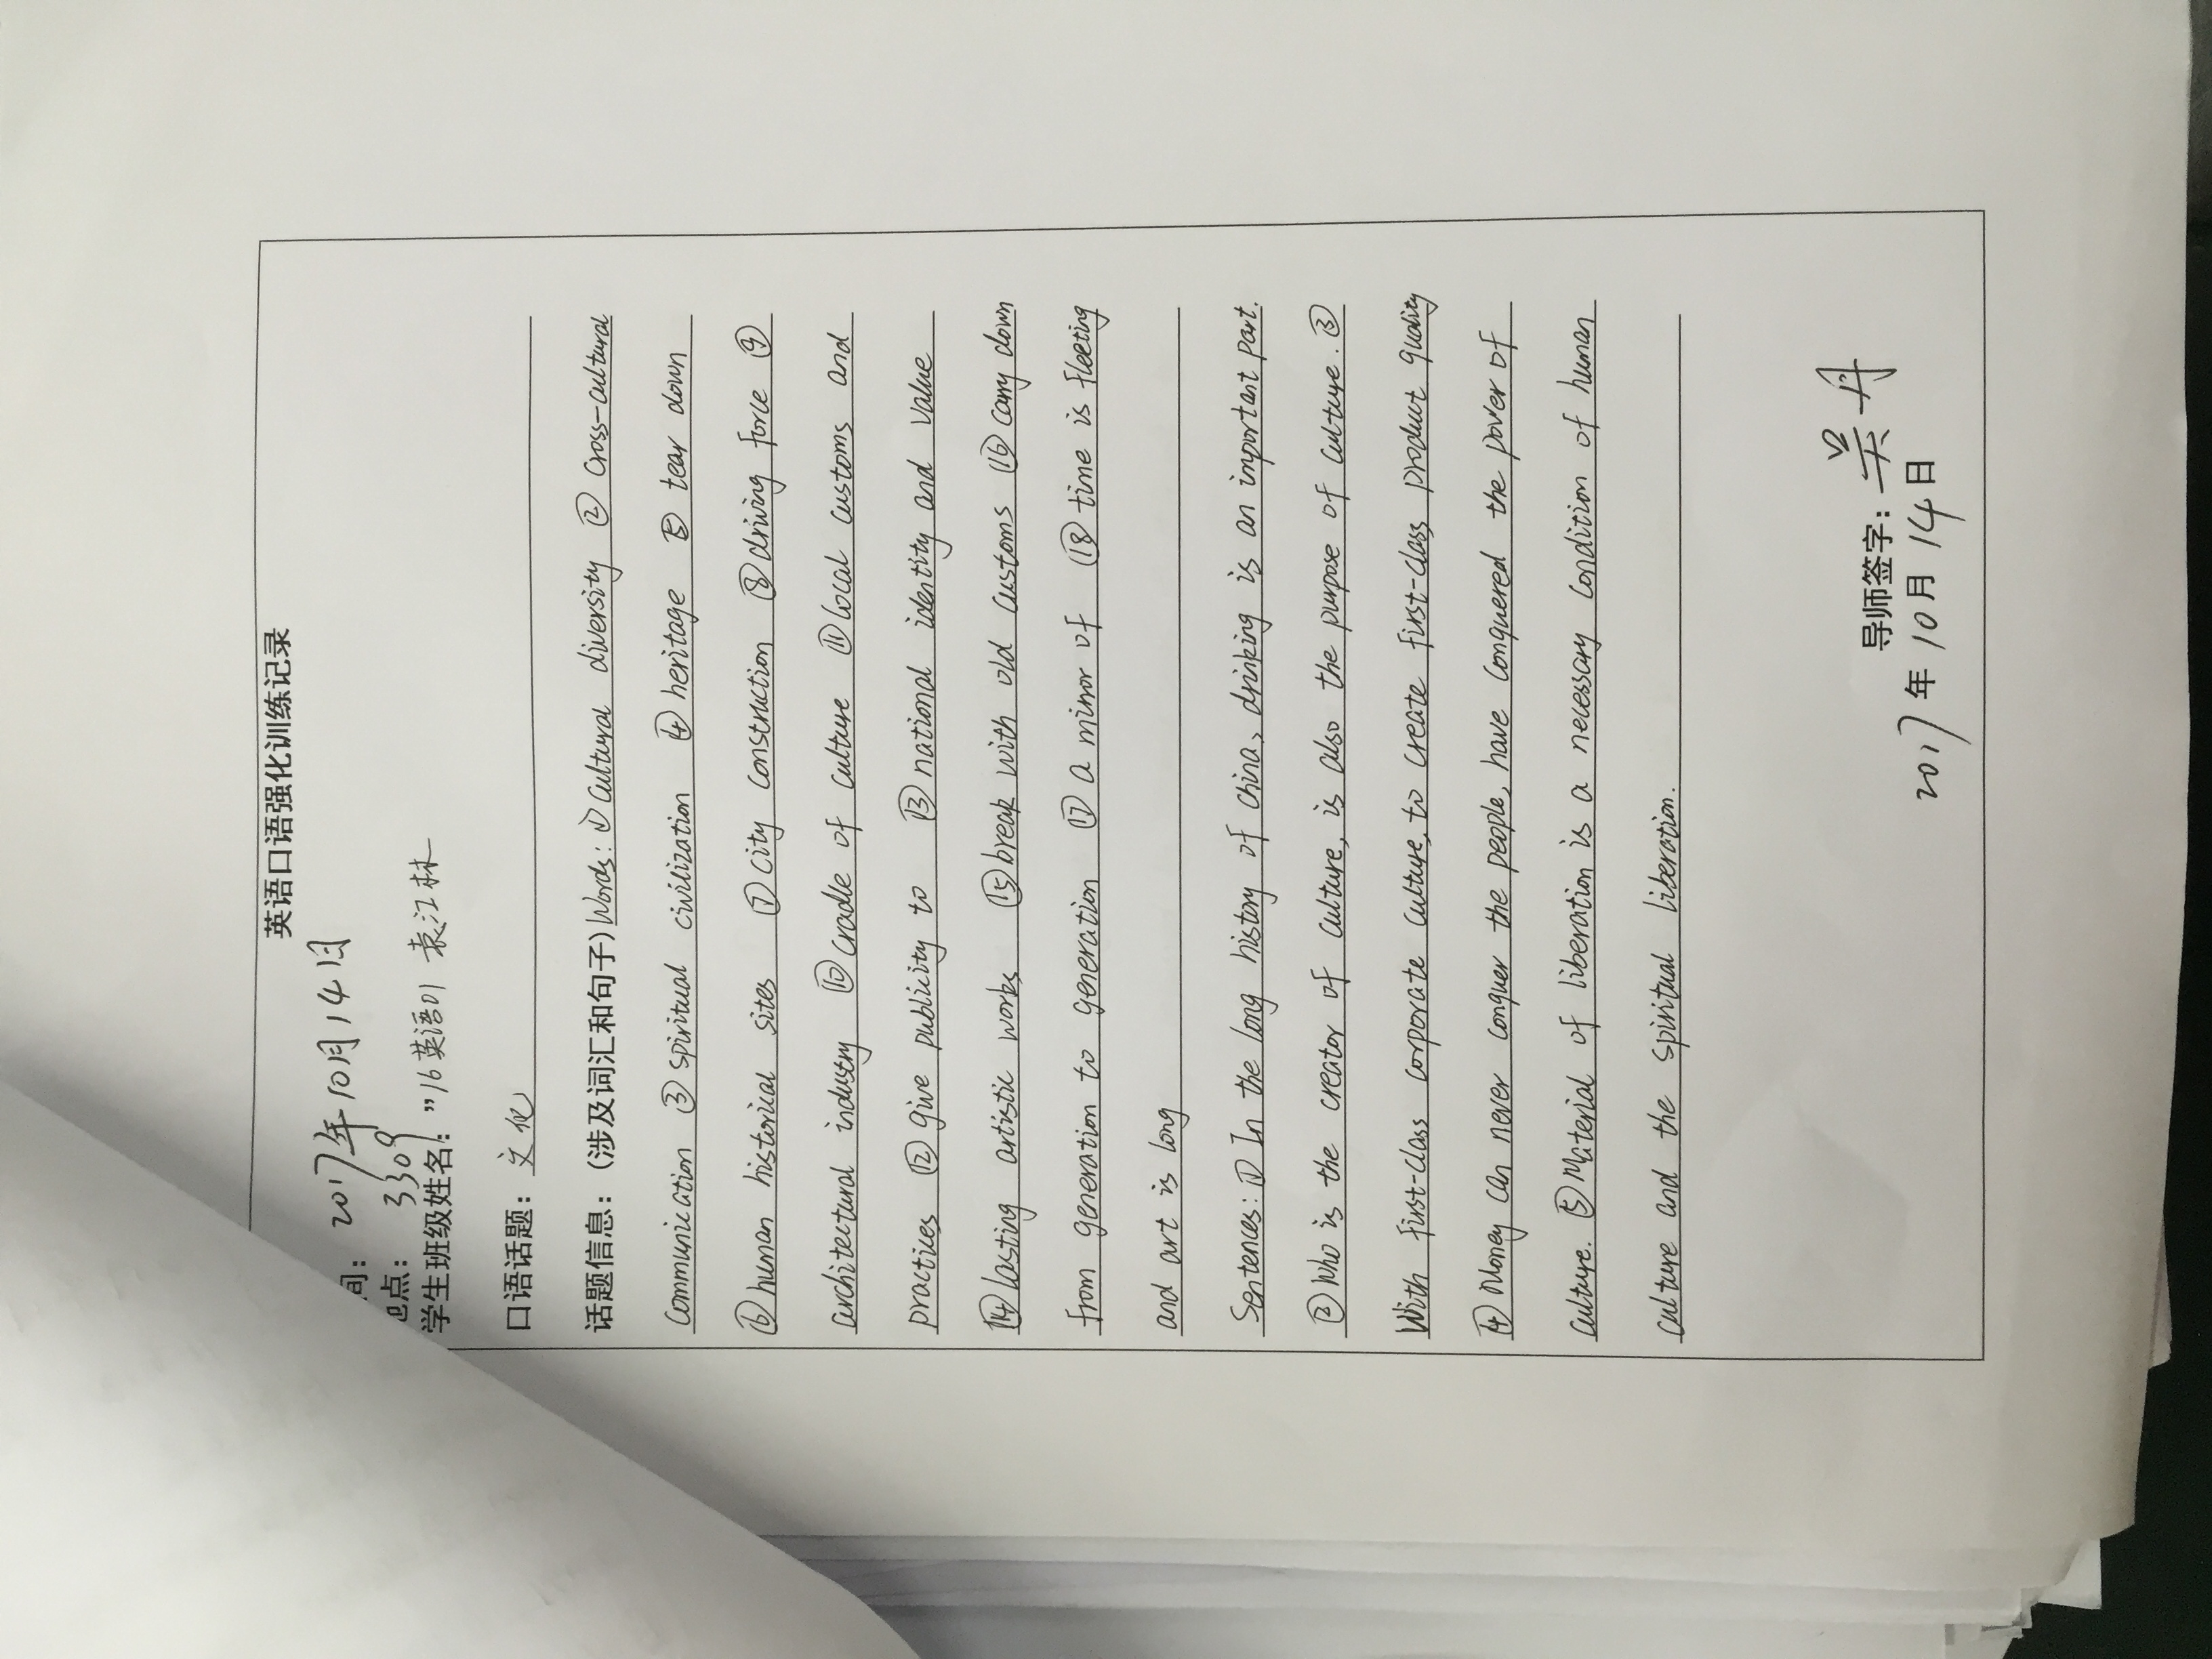 英语口语强化训练记录
间: 2017年10月14日
地点: 3309
学生班级姓名: "16英语01 袁江林
口语话题: 文化
话题信息:(涉及词汇和句子)Words: ① Cultural diversity ② Cross-cultural
Communication ③ Spiritual civilization ④ heritage ⑤ tear down
⑥ human historical sites ⑦ City construction ⑧ driving force ⑨
architectural industry ⑩ Cradle of culture ⑪ local customs and
practices ⑫ give publicity to ⑬ national identity and value
⑭ lasting artistic works ⑮ break with old customs ⑯ carry down
from generation to generation ⑰ a mirror of ⑱ time is fleeting
and art is long
Sentences: ① In the long history of China, drinking is an important part.
② Who is the creator of culture, is also the purpose of culture. ③
With first-class corporate culture, to create first-class product quality
④ Money can never conquer the people, have conquered the power of
culture. ⑤ Material of liberation is a necessary condition of human
culture and the spiritual liberation.
导师签字: 吴丹
2017年10月14日